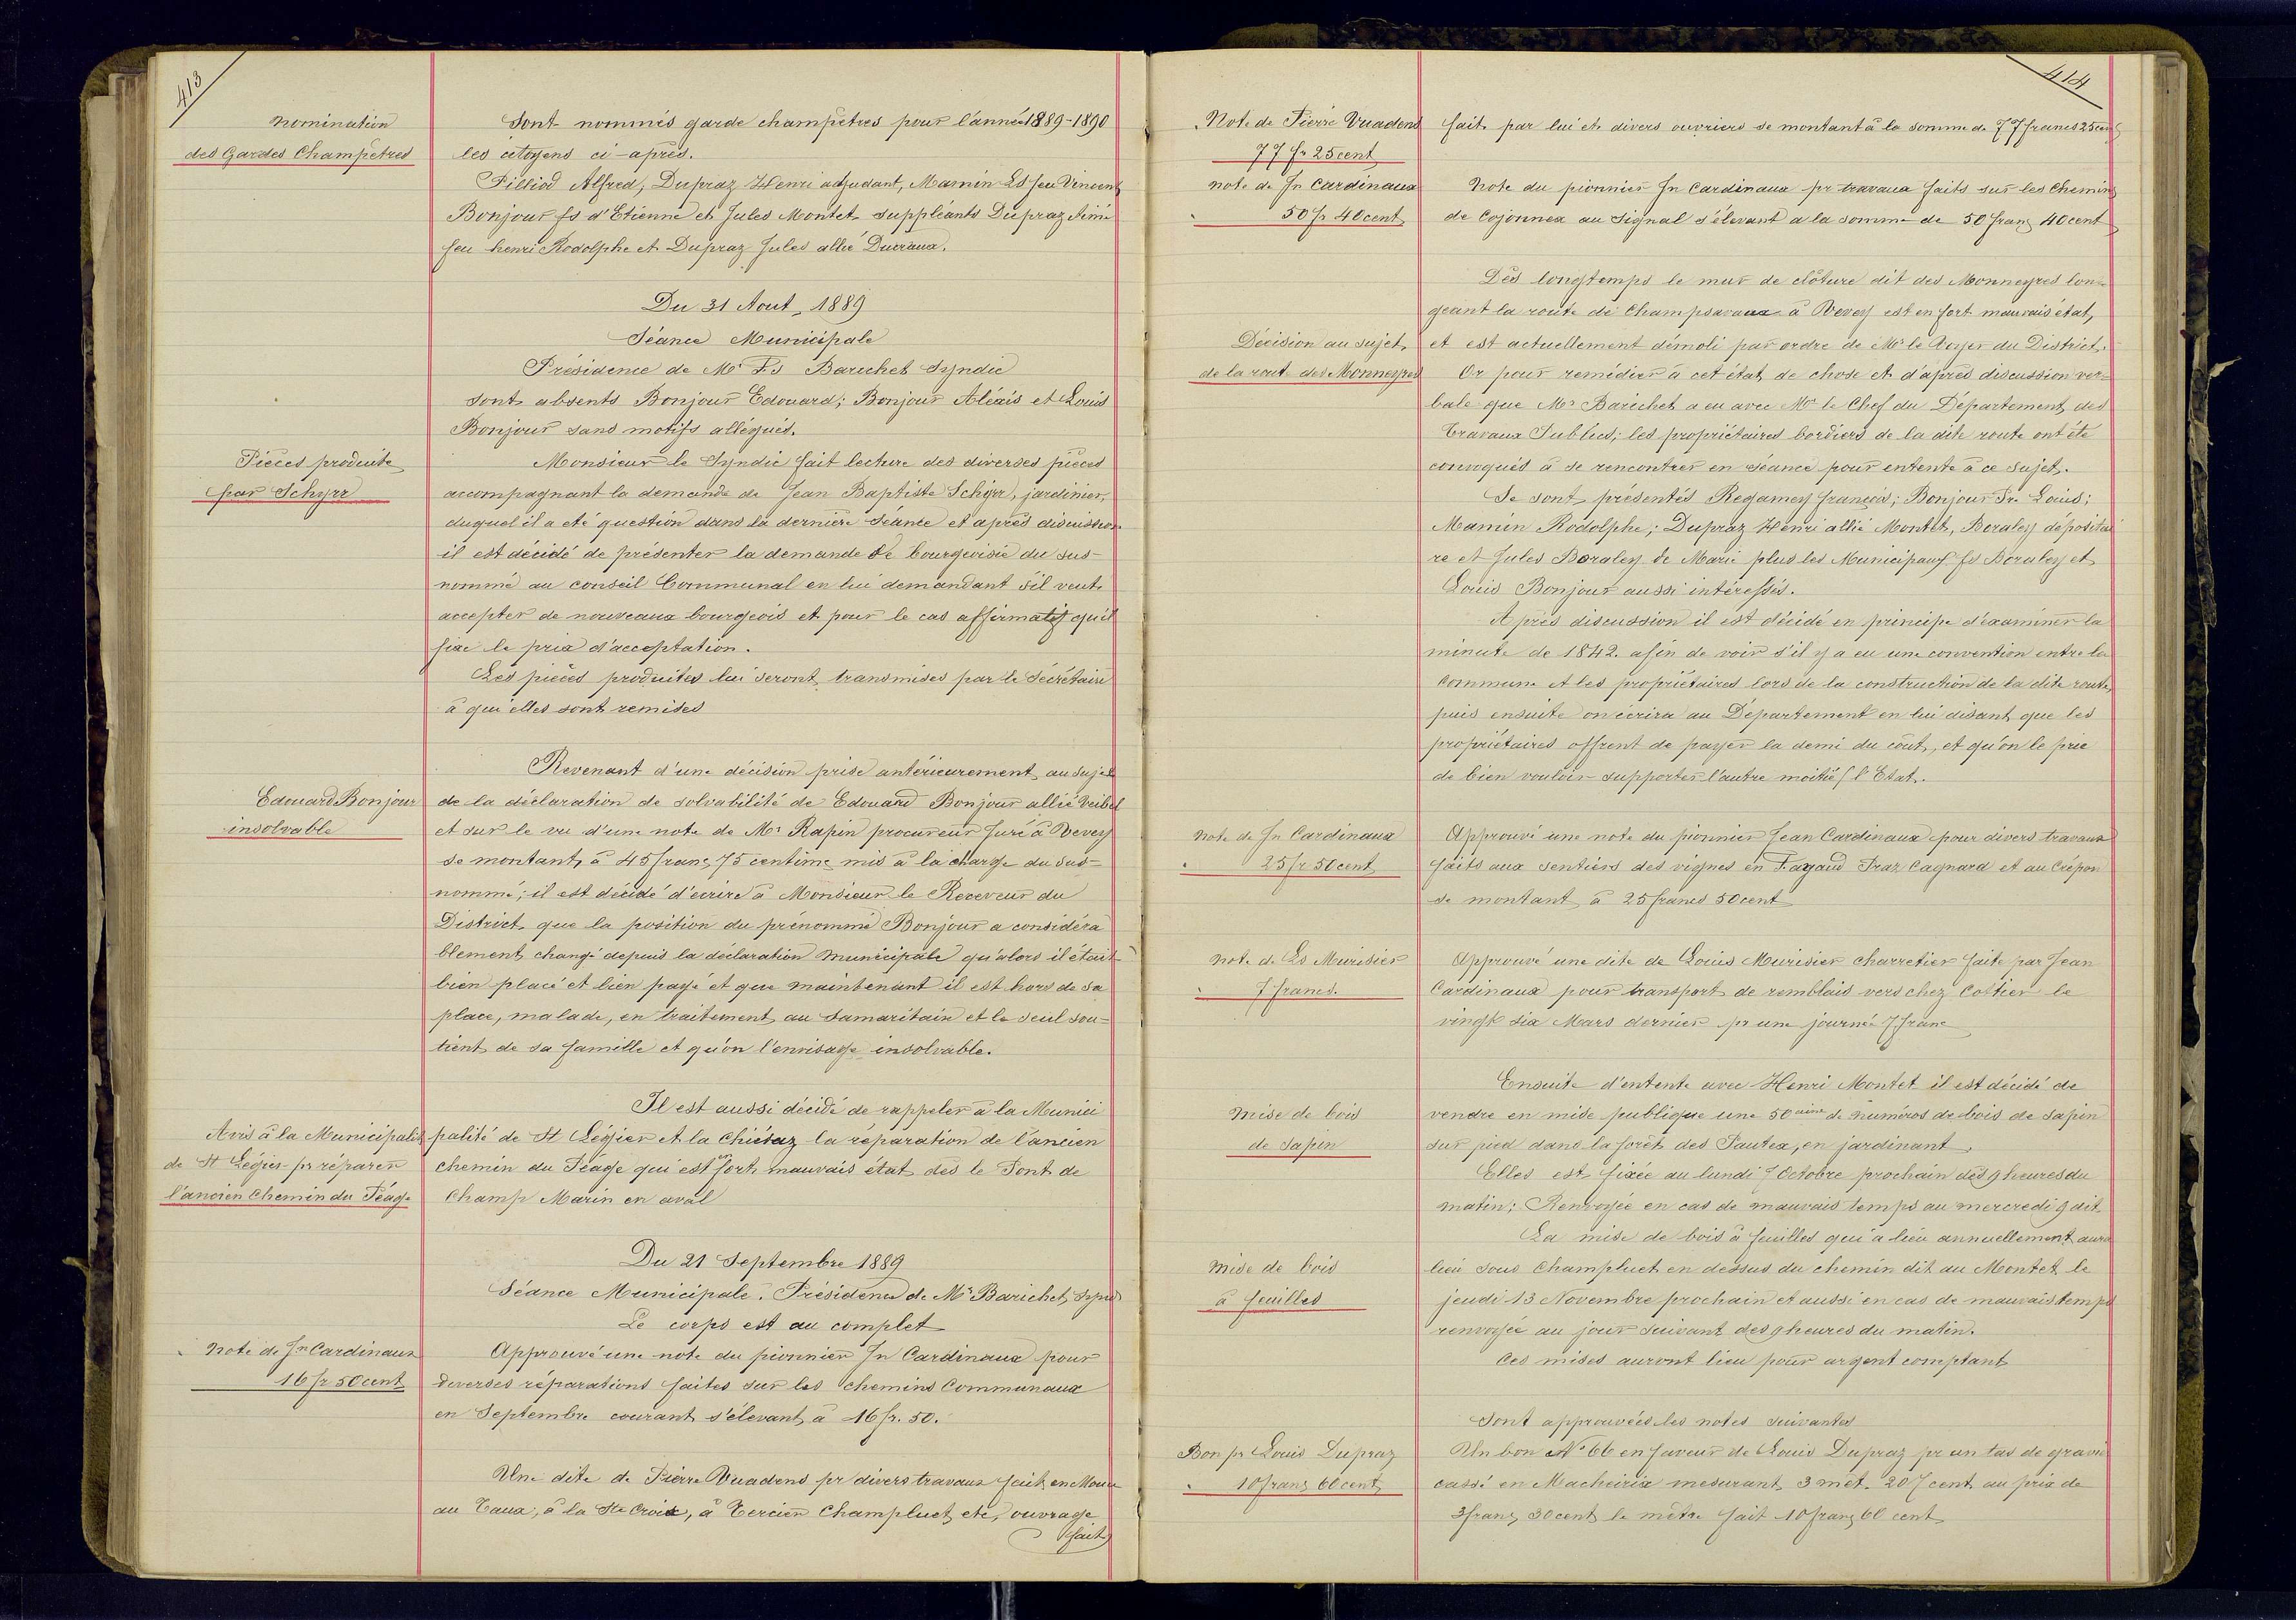 413
nomination
des Gardes Champêtres
Sont nommés garde champêtres pour l'année 1889-1890
les citoyens ci-après.
Filliod Alfred, Dupraz Henri adjudant, Mamin Ls feu Vincent
Bonjour fs d'Etienne et Jules Montet suppléants Dupraz Aimé
feu henri Rodolphe et Dupraz Jules allié Ducraux.
Du 31 Aout 1889
Séance Municipale
Présidence de Mr Fs Barichet Syndic
Sont absents Bonjour Edouard; Bonjour Aléxis et Louis
Bonjour sans motifs allégués.
Pièces produite
par Schyrr
Monsieur le Syndic fait lecture des diverses pièces
accompagnant la demande de Jean Baptiste Schyrr, jardinier,
duquel il a été question dans la dernière Séance et après discussion
il est décidé de présenter la demande de bourgeoisie du sus-
nommé au conseil Communal en lui demandant s'il veut
accepter de nouveaux bourgeois et pour le cas affirmatif qu'il
fixe le prix d'acceptation.
Les pièces produites lui seront transmises par le Secrétaire
à qui elles sont remises
Edouard Bonjour
insolvable
Revenant d'une décision prise antérieurement au sujet
de la déclaration de solvabilité de Edouard Bonjour allié Veibel
et sur le vu d'une note de Mr Rapin procureur Juré à Vevey
se montant à 45 franc 75 centime mis à la charge du sus-
nommé; il est décidé d'écrire à Monsieur le Receveur du
District que la position du prénommé Bonjour a considéra
blement changé depuis la déclaration municipale qu'alors il était
bien placé et bien payé et que maintenant il est hors de sa
place, malade, en traitement au Samaritain et le seul sou-
tient de sa famille et qu'on l'envisage insolvable.
Avis à la Municipalité
de St Légier pr réparer
l'ancien Chemin du Péage
Il est aussi décidé de rappeler à la Munici
palité de St Légier et la Chiésaz la réparation de l'ancien
chemin du Péage qui est en fort mauvais état dès le Pont de
Champ Marin en aval
Du 21 Septembre 1889
Séance Municipale. Présidence de Mr Barichet Synd
Le corps est au complet
Note de Jn Cardinaux
16 fr 50 cent
Approuvé une note du pionnier Jn Cardinaux pour
deverses réparations faites sur les chemins Communaux
en Septembre courant s'élevant à 16 fr. 50.
Une dite de Pierre Vuadens pr divers travaux fait en
au Taux, à la Ste Croix, à Tercier Champluet etc, ouvrage
fait
414
Note de Pierre Vuadens
77 fr 25 cent
fait par lui et divers ouvriers se montant à la somme de 77 francs 25 cent
note de Jn Cardinaux
50 fr 40 cent
Note du pionnier Jn Cardinaux pr travaux faits sur les chemins
de Cojonnex au Signal s'élevant a la somme de 50 franc 40 cent
Décision au sujet
de la rout des Monneyres
Dès longtemps le mur de clôture dit des Monneyres lon-
geant la route de Champsavaux à Vevey est en fort mauvais état,
et est actuellement démoli par ordre de Mr le Voyer du District.
Or pour remédier à cet état de chose et d'après discussion ver=
bale que Mr Barichet a eu avec Mr le Chef du Département des
Travaux Publics; les propriétaires bordiers de la dite route ont été
convoqués à se rencontrer en séance pour entente à ce sujet.
Se sont présentés Regamey françois; Bonjour Fr. Louis;
Mamin Rodolphe; Dupraz Henri allié Montet, Boraley dépositai
re et Jules Boraley de Marie plus les Municipaux fs Boraley et
Louis Bonjour aussi intéressés.
Après discussion il est décidé en principe d'examiner la
minute de 1842. afin de voir s'il y a eu une convention entre la
Commune et les propriétaires lors de la construction de la dite route,
puis ensuite on écrira au Département en lui disant que les
propriétaires offrent de payer la demi du coût, et qu'on le prie
de bien vouloir supporter l'autre moitié (l'Etat.
note de Jn Cardinaux
25 fr 50 cent
Approuvé une note du pionnier Jean Cardinaux pour divers travaux
faits aux sentiers des vignes en Fagaud Praz Cagnard et au Crépon
se montant à 25 francs 50 cent
note de Ls Murisier
7 francs.
Approuvé une dite de Louis Murisier charretier faite par Jean
Cardinaux pour transport de remblais vers chez Cottier le
vingt six Mars dernier pr une journée 7 franc
Mise de bois
de Sapin
Ensuite d'entente avec Henri Montet il est décidé de
vendre en mise publique une 50aine de numéros de bois de sapin
sur pied dans la forêt des Pautex, en jardinant.
Elles est fixée au lundi 7 Octobre prochain dès 9 heures du
matin; Renvoyée en cas de mauvais temps au mercredi 9 dit
mise de bois
à feuilles
La mise de bois à feuilles qui a lieu annuellement aura
lieu sous Champluet en dessus du chemin dit au Montet le
jeudi 13 Novembre prochain et aussi en cas de mauvais temps
renvoyée au jour suivant des 9 heures du matin.
Ces mises auront lieu pour argent comptant
Sont approuvées les notes suivantes
Bon pr Louis Dupraz
10 franc 60 cent
Un bon No 66 en faveur de Louis Dupraz pr un tas de gravi
cassé en Macheirix mesurant 3 mèt. 20 cent au prix de
3 franc 30 cent le mètre fait 10 franc 60 cent